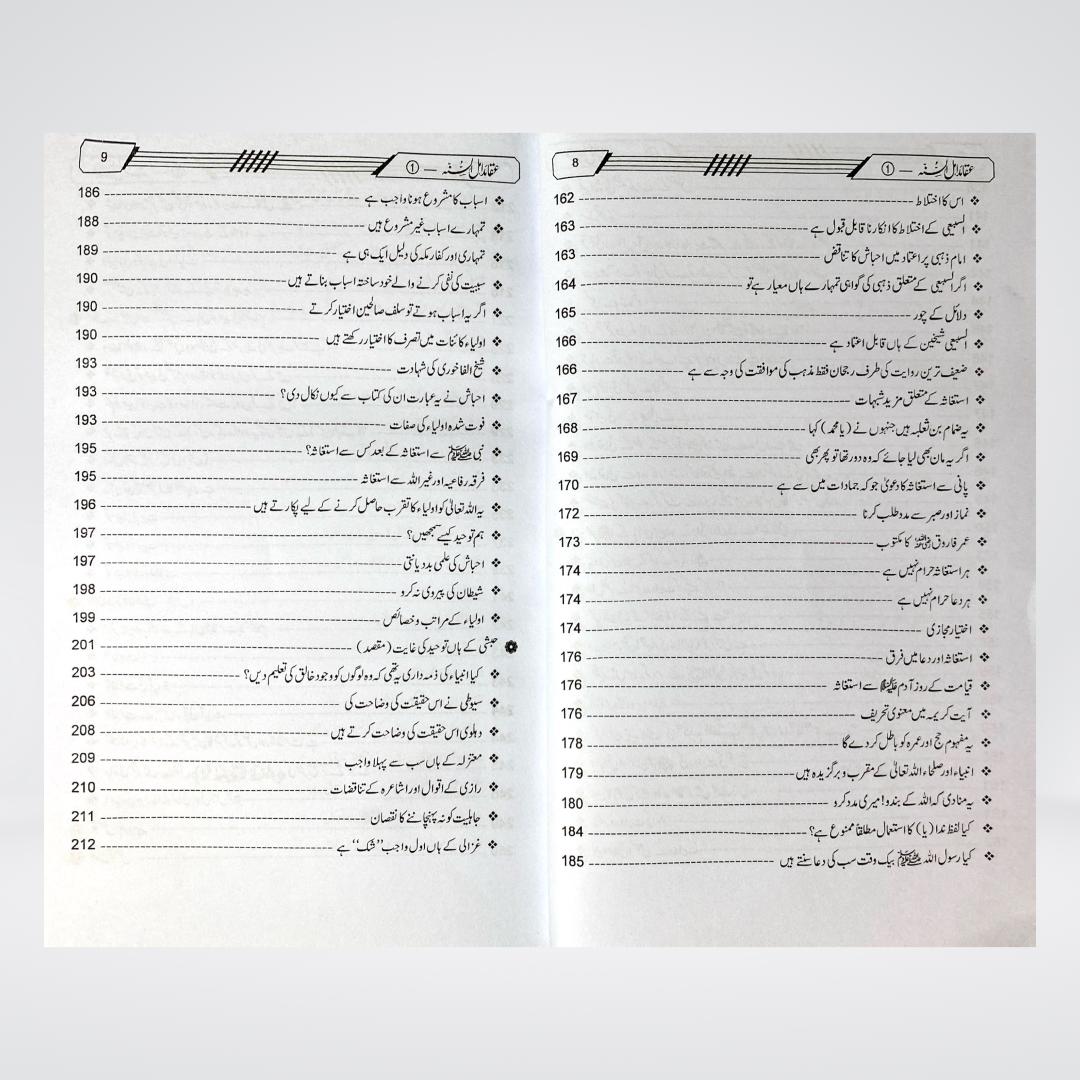 عقائد اہل السنہ — ① 8
❖ اس کا اختلاط 162
❖ السبیعی کے اختلاط کا انکار ناقابل قبول ہے 163
❖ امام ذہبی پر اعتماد میں احباش کا تناقض 163
❖ اگر السبیعی کے متعلق ذہبی کی گواہی تمہارے ہاں معیار ہے تو 164
❖ دلائل کے چور 165
❖ السبیعی شیخین کے ہاں قابل اعتماد ہے 166
❖ ضعیف ترین روایت کی طرف رجحان فقط مذہب کی موافقت کی وجہ سے ہے 166
❖ استغاثہ کے متعلق مزید شبہات 167
❖ یہ ضمام بن ثعلبہ ہیں جنہوں نے (یا محمد) کہا 168
❖ اگر یہ مان بھی لیا جائے کہ وہ دور تھا تو پھر بھی 169
❖ پانی سے استغاثہ کا دعویٰ جو کہ جمادات میں سے ہے 170
❖ نماز اور صبر سے مدد طلب کرنا 172
❖ عمر فاروق رضی اللہ عنہ کا مکتوب 173
❖ ہر استغاثہ حرام نہیں ہے 174
❖ ہر دعا حرام نہیں ہے 174
❖ اختیار مجازی 174
❖ استغاثہ اور دعا میں فرق 176
❖ قیامت کے روز آدم علیہ السلام سے استغاثہ 176
❖ آیت کریمہ میں معنوی تحریف 176
❖ یہ مفہوم حج اور عمرہ کو باطل کر دے گا 178
❖ انبیاء اور صلحاء اللہ تعالیٰ کے مقرب و برگزیدہ ہیں 179
❖ یہ منادی کہ اللہ کے بندو! میری مدد کرو 180
❖ کیا لفظ ندا (یا) کا استعمال مطلقاً ممنوع ہے؟ 184
❖ کیا رسول اللہ ﷺ بیک وقت سب کی دعا سنتے ہیں 185
عقائد اہل السنہ — ① 9
❖ اسباب کا مشروع ہونا واجب ہے 186
❖ تمہارے اسباب غیر مشروع ہیں 188
❖ تمہاری اور کفار مکہ کی دلیل ایک ہی ہے 189
❖ سببیت کی نفی کرنے والے خود ساختہ اسباب بناتے ہیں 190
❖ اگر یہ اسباب ہوتے تو سلف صالحین اختیار کرتے 190
❖ اولیاء کائنات میں تصرف کا اختیار رکھتے ہیں 190
❖ شیخ الفاخوری کی شہادت 193
❖ احباش نے یہ عبارت ان کی کتاب سے کیوں نکال دی؟ 193
❖ فوت شدہ اولیاء کی صفات 193
❖ نبی ﷺ سے استغاثہ کے بعد کس سے استغاثہ؟ 195
❖ فرقہ رفاعیہ اور غیر اللہ سے استغاثہ 195
❖ یہ اللہ تعالیٰ کو اولیاء کا تقرب حاصل کرنے کے لیے پکارتے ہیں 196
❖ ہم توحید کیسے سمجھیں؟ 197
❖ احباش کی علمی بددیانتی 197
❖ شیطان کی پیروی نہ کرو 198
❖ اولیاء کے مراتب و خصائص 199
حبشی کے ہاں توحید کی غایت (مقصد) 201
❖ کیا انبیاء کی ذمہ داری یہ تھی کہ وہ لوگوں کو وجود خالق کی تعلیم دیں؟ 203
❖ سیوطی نے اس حقیقت کی وضاحت کی 206
❖ دہلوی اس حقیقت کی وضاحت کرتے ہیں 208
❖ معتزلہ کے ہاں سب سے پہلا واجب 209
❖ رازی کے اقوال اور اشاعرہ کے تناقضات 210
❖ جاہلیت کو نہ پہچاننے کا نقصان 211
❖ غزالی کے ہاں اول واجب ”شک“ ہے 212